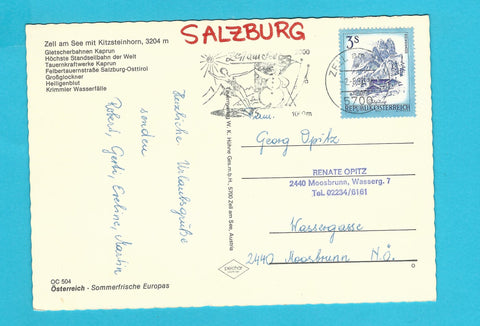 SALZBURG
Zell am See mit Kitzsteinhorn, 3204 m
Gletscherbahnen Kaprun
Höchste Standseilbahn der Welt
Tauernkraftwerke Kaprun
Felbertauernstraße Salzburg-Osttirol
Großglockner
Heiligenblut
Krimmler Wasserfälle
Herzliche Urlaubsgrüße
senden
Robert, Gerti, Eveline, Martin
W. K. Höhne Ges.m.b.H., 5700 Zell am See, Austria
3S
REPUBLIK ÖSTERREICH
ZELL
5700
Fam.
Georg Opitz
RENATE OPITZ
2440 Moosbrunn, Wasserg. 7
Tel. 02234/8161
Wassergasse
2440 Moosbrunn N.Ö.
OC 504
Österreich - Sommerfrische Europas